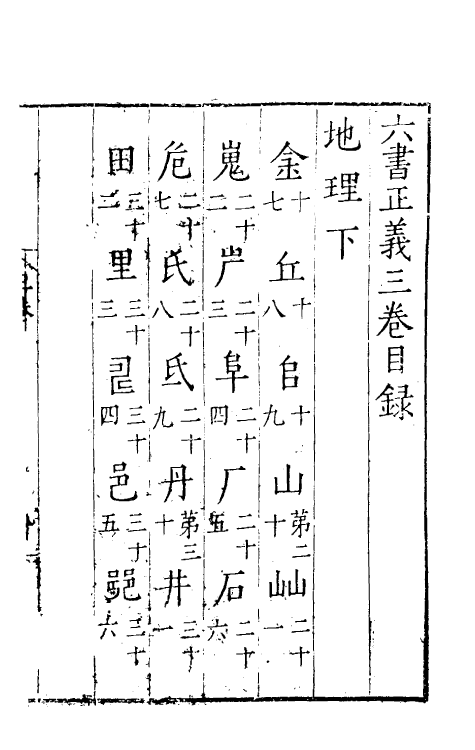 六書正義三卷目録
地理下
金十七 丘十八 𠂤十九 山第二十 屾二十一
嵬二十二 屵二十三 阜二十四 厂二十五 石二十六
危二十七 氏二十八 氐二十九 丹第三十 井三十一
田三十二 里三十三 三十四 邑三十五 三十六